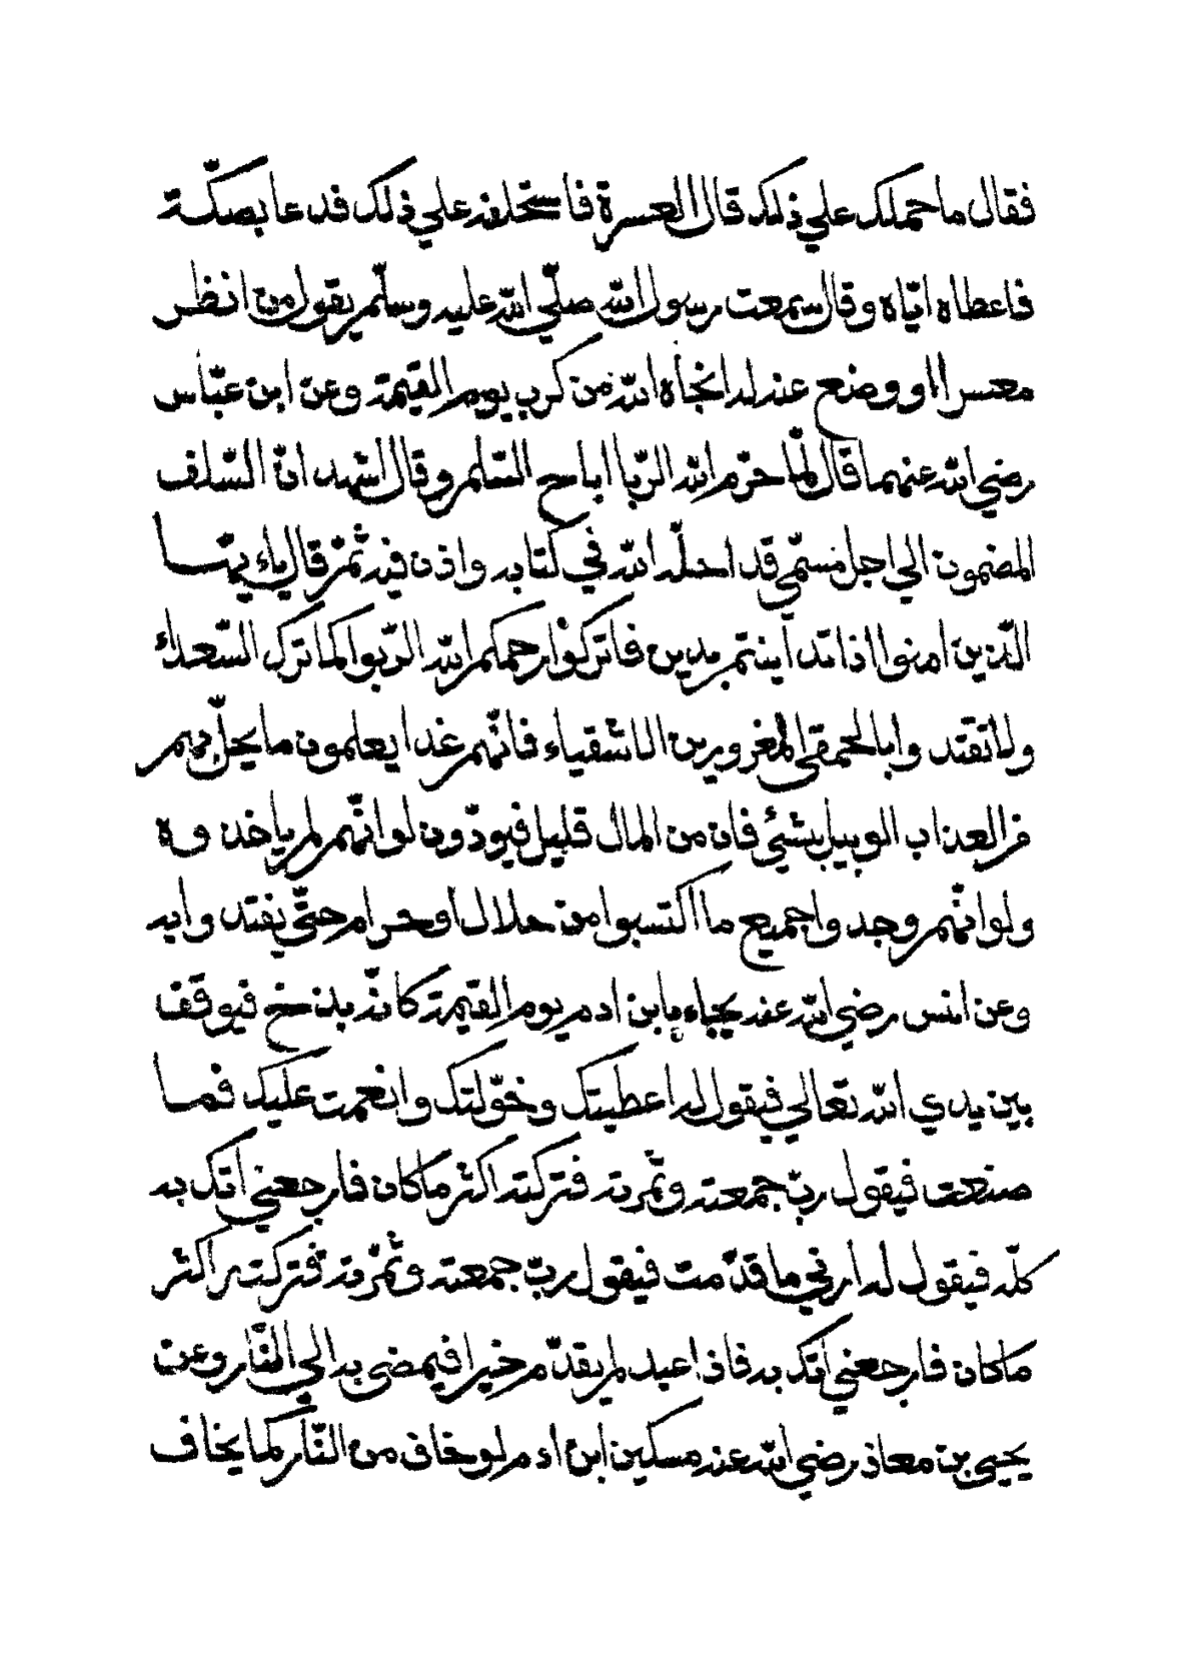 فقال ما حملك علي ذلك قال العسرة فاستحلفه علي ذلك فدعا بصكّة
فاعطاه ايّاه وقال سمعت رسول الله صلّي الله عليه وسلّم يقول من انظر
معسرا او وضع عنه له انجاه الله من كرب يوم القيمة وعن ابن عبّاس
رضي الله عنهما قال لمّا حرّم الله الرّبا اباح السّلم وقال اشهد انّ السّلف
المضمون الي اجل مسمّي قد احلّه الله في كتابه واذن فيه ثمّ قال ياء يّها
الّذين امنوا اذا تداينتم بدين فاتركوا رحمكم الله الرّبوا كما ترك السّعداء
ولا تقتدوا بالحمقي المغرورين الاشقياء فانّهم غدا يعلمون ما يحلّ بهم
من العذاب الوبيل بشئي فان من المال قليل فيودّون لو انّهم لم ياخذوه
ولو انّهم وجدوا جميع ما اكتسبوا من حلال او حرام حتّي يفتدوا به
وعن انس رضي الله عنه يجاء بابن ادم يوم القيمة كانّه بذخ فيوقف
بين يدي الله تعالي فيقول له اعطيتك وخوّلتك وانعمت عليك فما
صنعت فيقول ربّ جمعته وثمّرته فتركته اكثر ما كان فارجعني اتك به
كلّه فيقول له ارني ما قدّمت فيقول ربّ جمعته وثمّرته فتركته اكثر
ما كان فارجعني اتك به فاذا عبد لم يقدّم خيرا فيمضي به الي النّار وعن
يحيي بن معاذ رضي الله عنه مسكين ابن ادم لو خاف من النّار كما يخاف